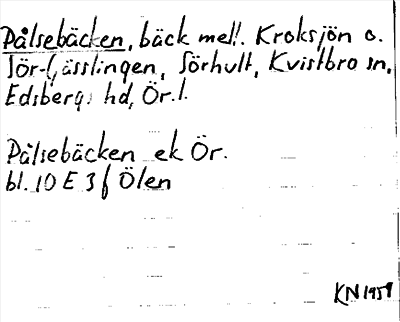 Pålsebäcken, bäck mell. Kroksjön o.
Sör-Gässlingen, Sörhult, Kvistbro sn,
Edsbergs hd, Ör. l.
Pålsebäcken ek Ör.
bl. 10 E 3 f Ölen
KN 1959